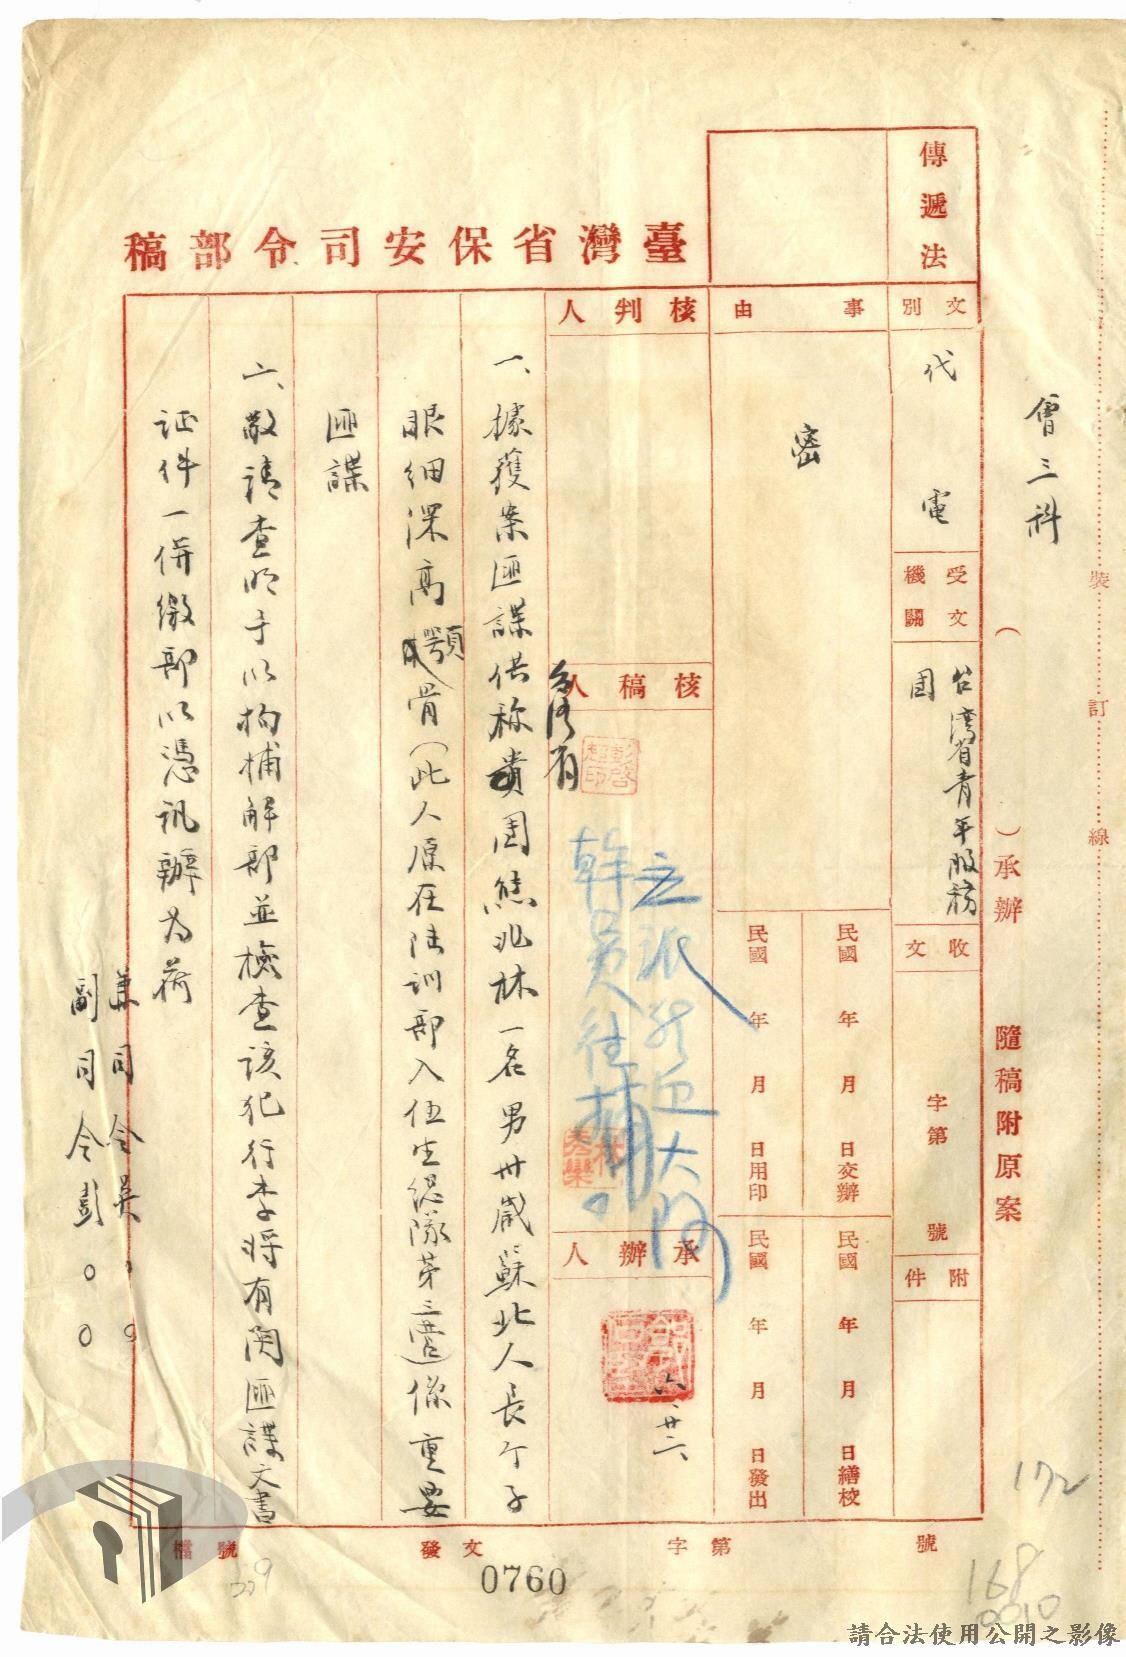 傳遞法
臺灣省保安司令部稿
會三科
裝
訂
線
(　　)承辦　隨稿附原案
文別
代電
受文機關
台湾省青年服務団
收文
字第　號
附件
事由
密
民國　年　月　日交辦
民國　年　月　日繕校
民國　年　月　日用印
民國　年　月　日發出
核判人
核稿人
立派
幹員往捕。
承辦人
六、廿六
一、據獲案匪諜供称貴団熊兆林一名男卅歲蘇北人長个子
眼细深高顎骨(此人原在陆训部入伍生总隊第三营)係重要
匪諜
二、敬請查明予以拘捕解部並檢查該犯行李将有関匪諜文書
证件一併缴部以憑讯辦為荷
兼司令吴。。
副司令彭。。
檔號
發文
字第
號
0760
172
168
0010
請合法使用公開之影像